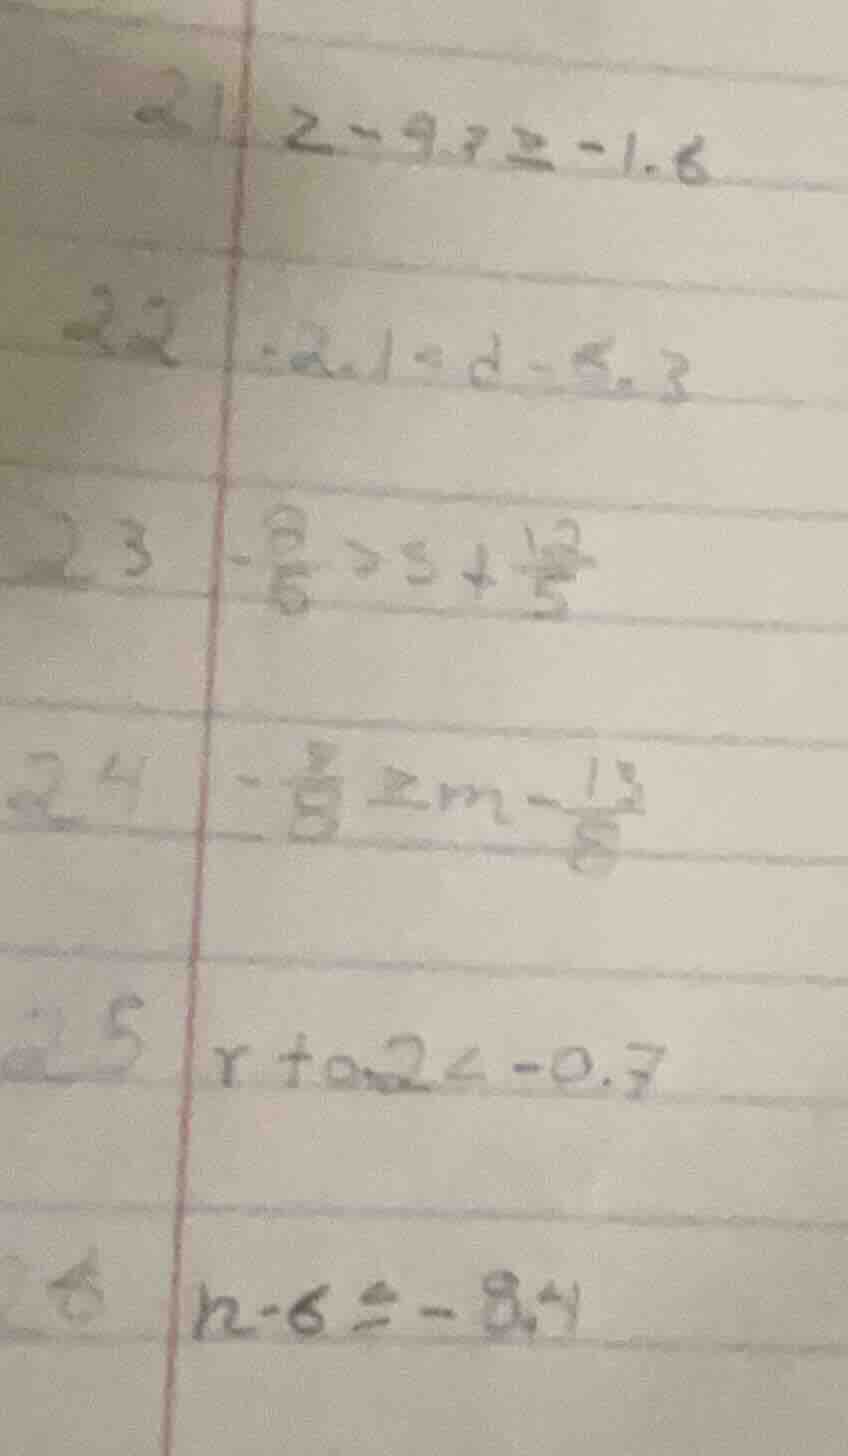 21 z - 9.7 ≥ -1.6
22 -2.1 < d - 5.3
23 - 8/5 > s + 12/5
24 - 7/5 ≥ m - 13/5
25 r + 0.2 < -0.7
26 n - 6 ≤ - 8.4